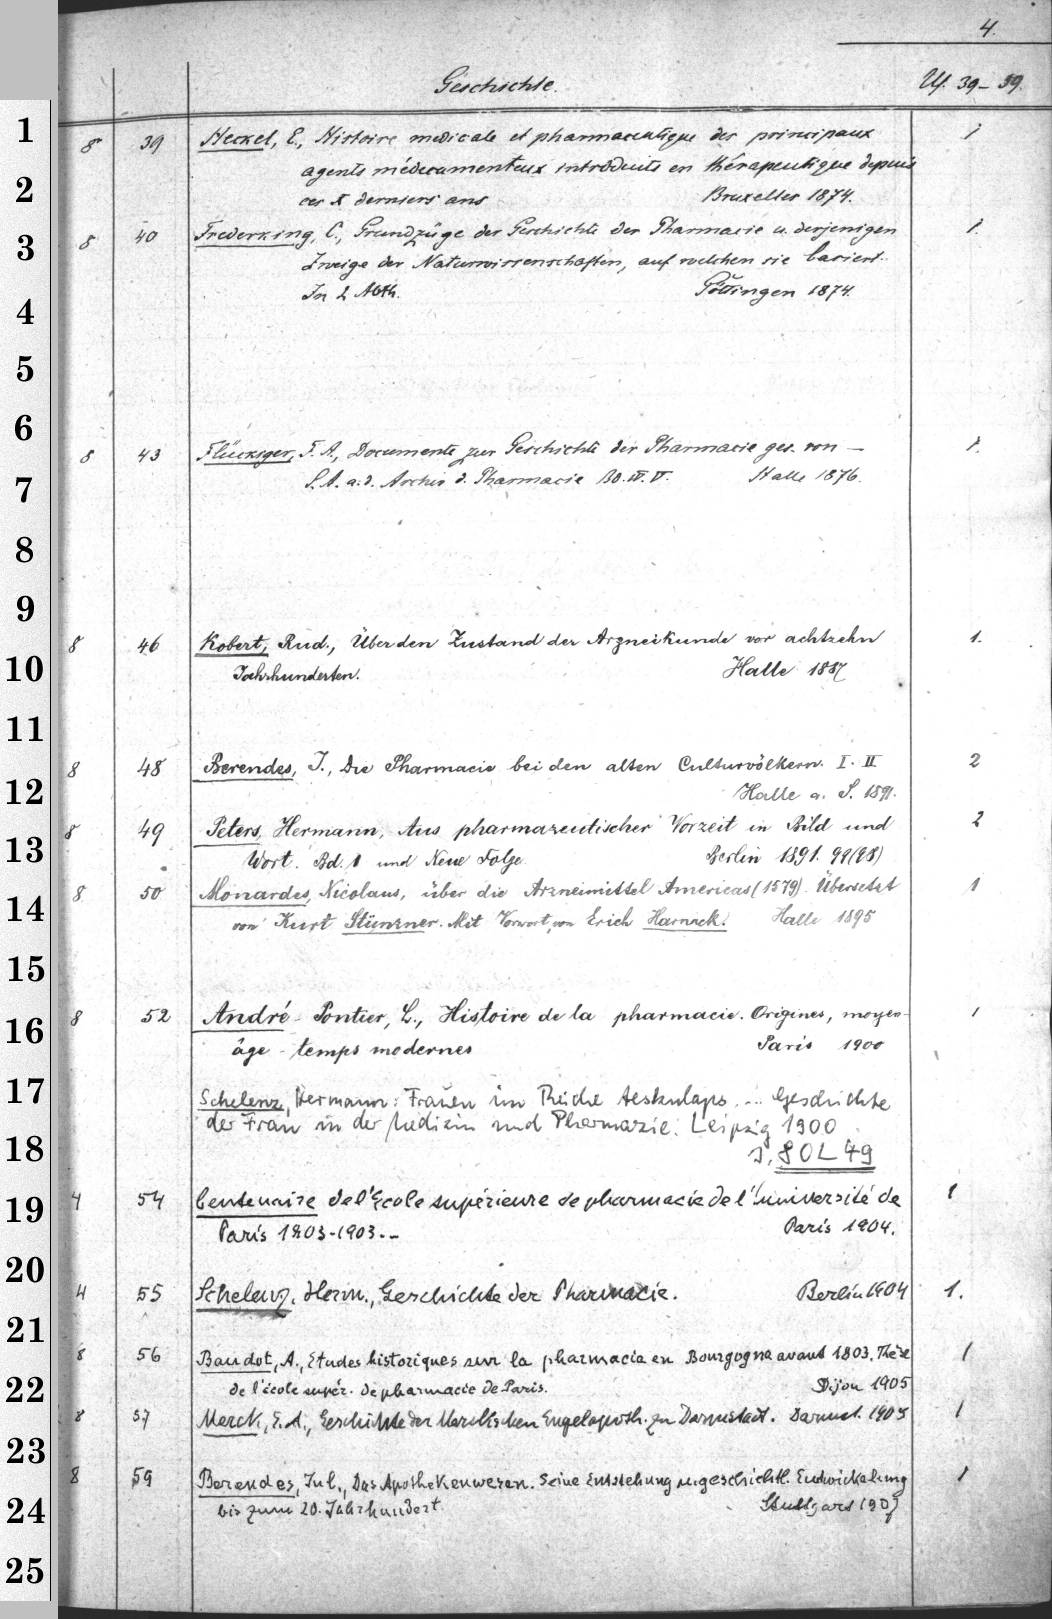 4.
Geschichte. Uf. 39-59.
8 39 Heckel, E., Histoire medicale et pharmaceutique des principaux 1
agents médicamenteux introduits en thérapeutique depuis
ces X derniers ans Bruxelles 1874.
8 40 Frederking, C., Grundzüge der Geschichte der Pharmacie u. derjenigen 1.
Zweige der Naturwissenschaften, auf welchen sie basiert.
In 2 Abth. Göttingen 1874.
8 43 Flückiger, F. A., Documente zur Geschichte der Pharmacie ges. von — 1.
S. A. a. d. Archiv d. Pharmacie Bd. IV. V. Halle 1876.
8 46 Kobert, Rud., Über den Zustand der Arzneikunde vor achtzehn 1.
Jahrhunderten. Halle 1887
8 48 Berendes, J., Die Pharmacie bei den alten Culturvölkern. I. II 2
Halle a. S. 1891.
8 49 Peters, Hermann, Aus pharmazeutischer Vorzeit in Bild und 2
Wort. Bd. 1 und Neue Folge. Berlin 1891. 99(98)
8 50 Monardes, Nicolaus, über die Arzneimittel Americas (1579). Übersetzt 1
von Kurt Stünzner. Mit Vorwort von Erich Harnack. Halle 1895
8 52 André-Pontier, L., Histoire de la pharmacie. Origines, moyen- 1
âge - temps modernes Paris 1900
Schelenz, Hermann: Frauen im Reiche Aeskulaps. ... Geschichte
der Frau in der Medizin und Pharmazie. Leipzig 1900
s. 8 OL 49
4 54 Centenaire de l'École supérieure de pharmacie de l'université de 1
Paris 1803-1903.- Paris 1904.
4 55 Schelenz, Herm., Geschichte der Pharmacie. Berlin 1904 1.
8 56 Baudot, A., Etudes historiques sur la pharmacie en Bourgogne avant 1803. Thèse 1
de l'école supér. de pharmacie de Paris. Dijon 1905
8 57 Merck, E. A., Geschichte der Merckschen Engelapoth. zu Darmstadt. Darmst. 1905 1
8 59 Berendes, Jul., Das Apothekenwesen. Seine Entstehung u. geschichtl. Entwickelung 1
bis zum 20. Jahrhundert. Stuttgart 1907
1
2
3
4
5
6
7
8
9
10
11
12
13
14
15
16
17
18
19
20
21
22
23
24
25